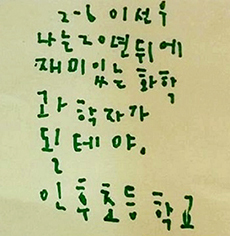 2-6 이선우
나는 20년 뒤에
재미있는 화학
과학자가
될 테야.
인후초등학교